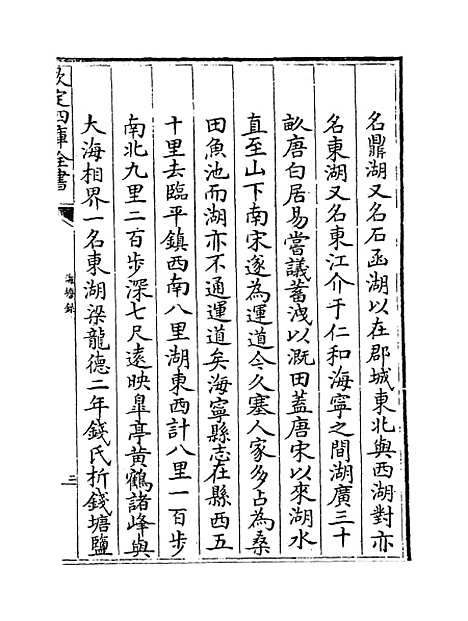 名鼎湖又名石函湖以在郡城東北與西湖對亦
名東湖又名東江介于仁和海寧之間湖廣三十
畝唐白居易嘗議蓄洩以溉田蓋唐宋以來湖水
直至山下南宋遂為運道今久塞人家多占為桑
田魚池而湖亦不通運道矣海寧縣志在縣西五
十里去臨平鎮西南八里湖東西計八里一百步
南北九里二百步深七尺遠映臯亭黃鶴諸峰與
大海相界一名東湖梁龍德二年錢氏折錢塘鹽
欽定四庫全書
海塘錄
三